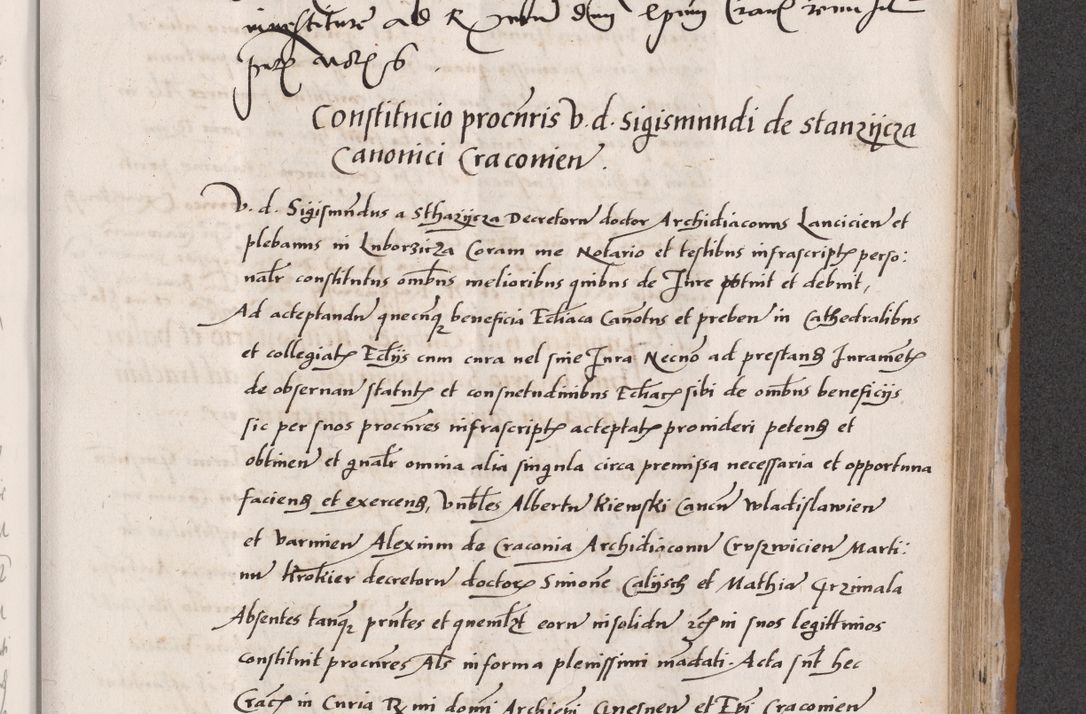 investiture ad R
Constitucio procuris V. d. Sigismundi de Stanzijcza
Canonici Cracovien.
V. d. Sigismundus a Sthazijcza Decretoru doctor Archidiaconus Lancicien et
plebanus in Luborzicza Coram me Notario et testibus infrascript perso:
nalr constitutus ombus melioribus quibus de Jure potuit et debuit,
Ad acceptandu quecuq beneficia Ecliaca Canotus et preben in Cathedralibus
et collegiat Eclijs cum cura vel sine Jura Necno ad prestand Jurament
de observan statut et consuetudinibus Ecliar sibi de ombus beneficijs
sic per suos procures infrascript acceptat provideri petend et
obtinen et gnalr omnia alia singula circa premissa necessaria et opportuna
faciend et exercend, Vnbles Albertu Kiewski Canon Wladislawien
et Varmien Alexium de Cracovia Archidiaconu Cruszwicien Marti:
nu Krokier decretoru doctores Simone Calijsch et Mathia Grzimala
Absentes tanq pntes et quemlbt eoru insolidu rc in suos legittimos
constituit procures Als in forma plenissimi madati. Acta sut hec
Crac in Curia Rmi domi Archiepi Gnesnen et Epi Cracovien